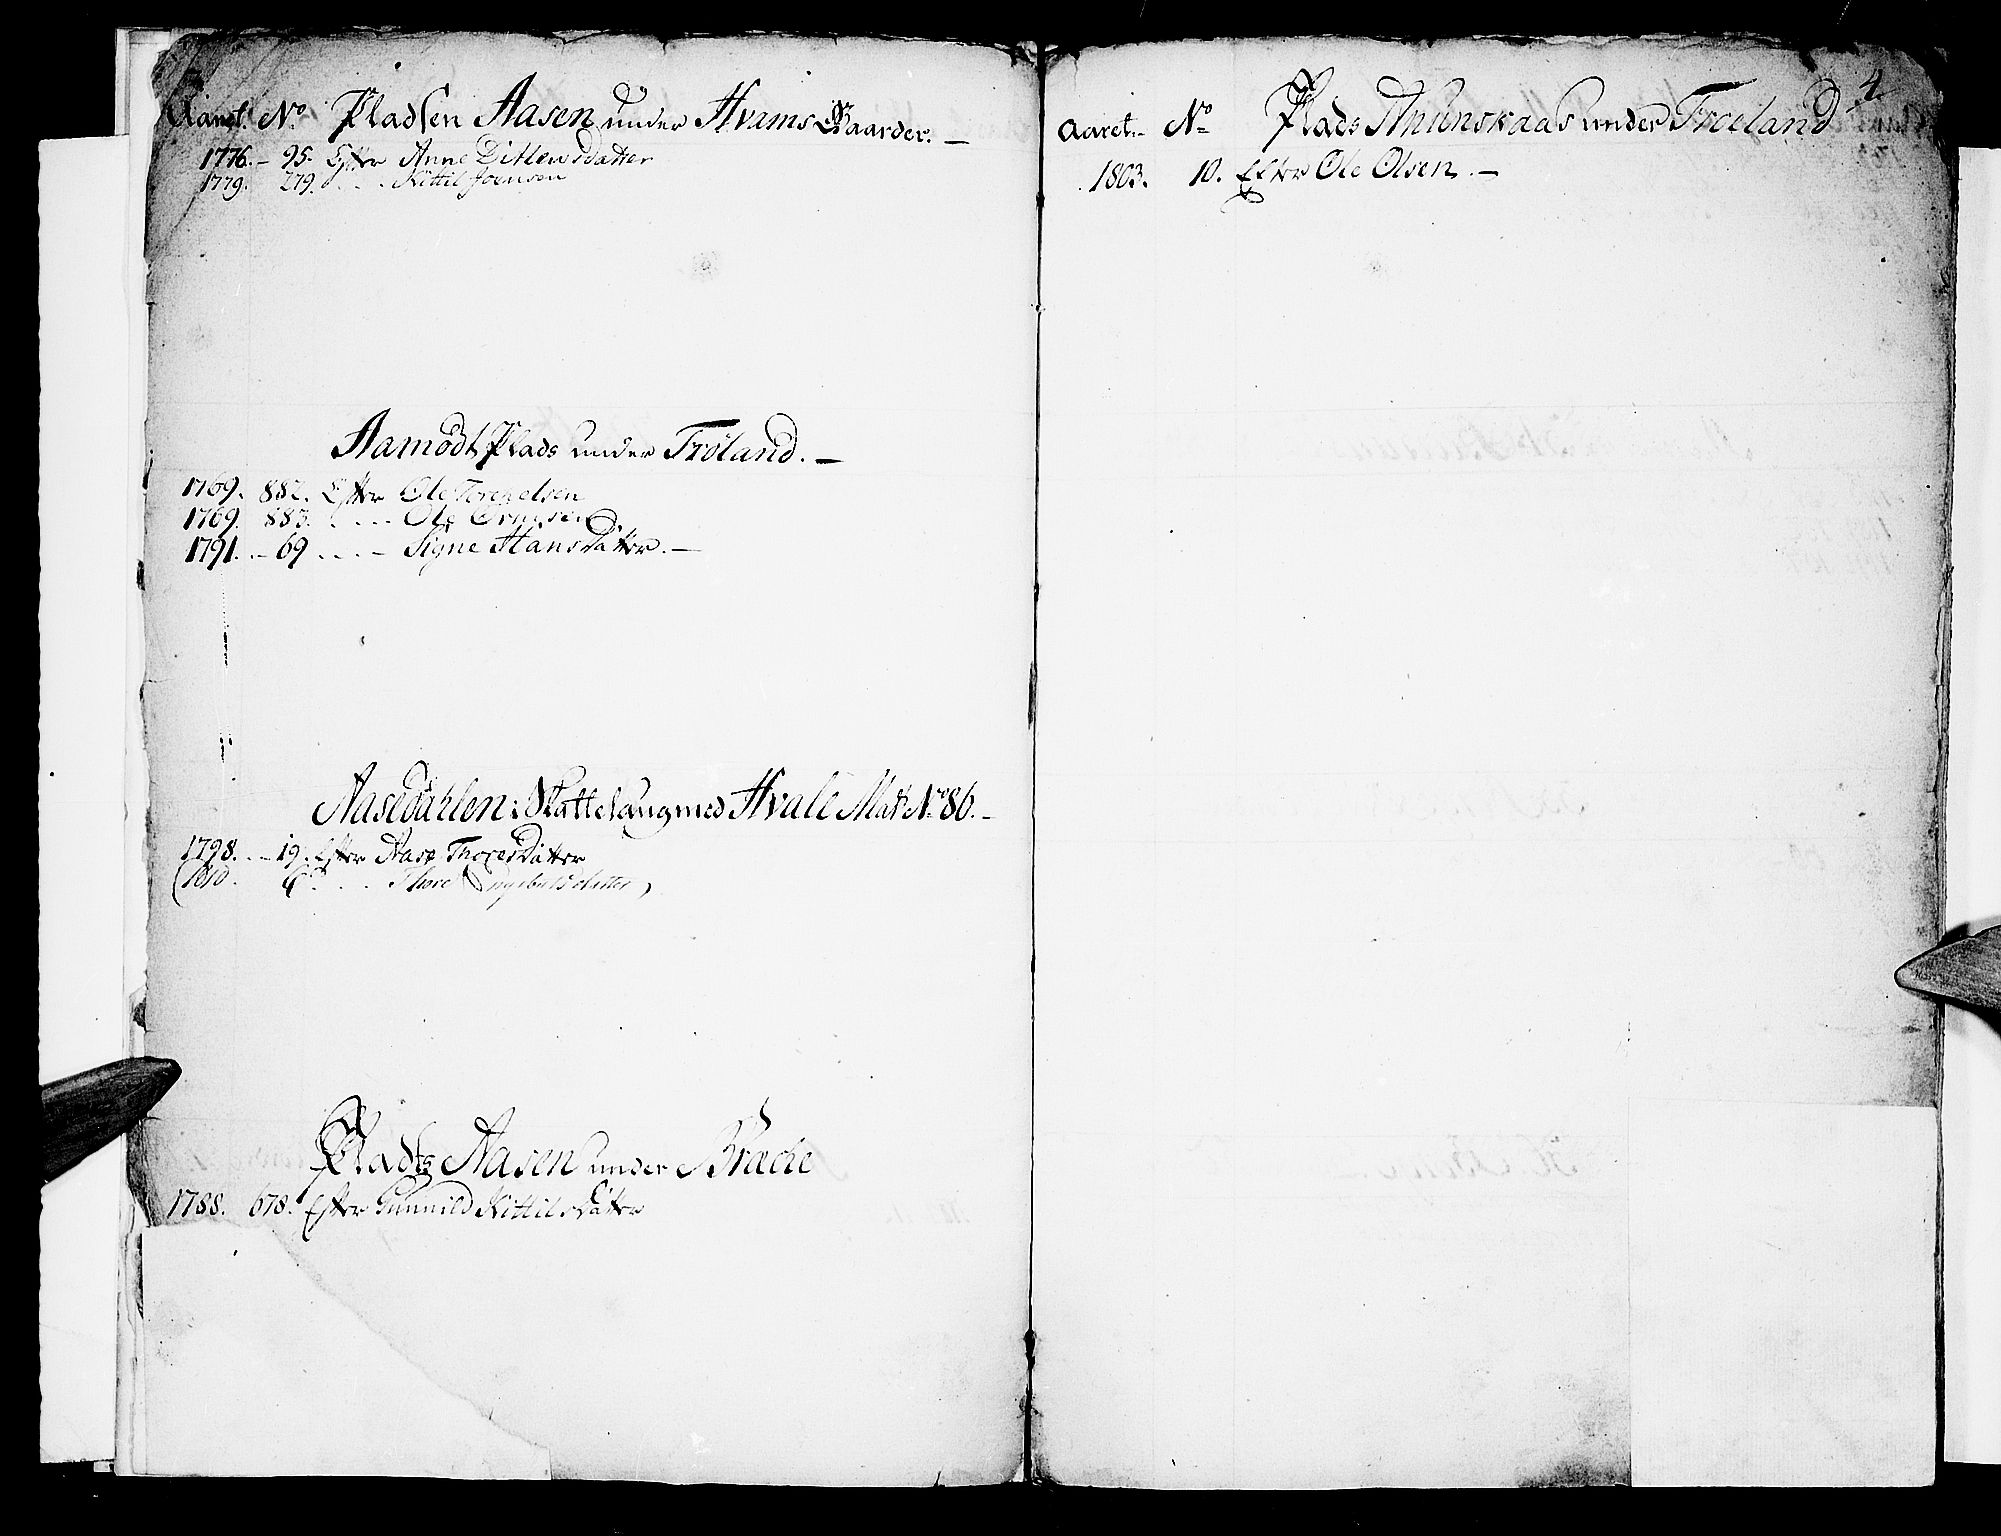 Aaret. No. Pladsen Aasen under Hvams Gaarder. —
1776. - 95. Efter Anne Ditlewsdatter
1779. 279. . . . Kittil Joensen
Aamodt Plads under Tröland. —
1769. 882. Efter Ole
1769. 883. . . . - Ole
1791. - 69 . . . - Signe Hansdatter. —
Aasedahlen: Skattelaug med Hvale Mat: No 86. -
1798. - 19. Efter Aase Thoresdatter
(1810. 6. . . . Thore Engebretsdatter)
Plads Aasen under Bræche
1788. 678. Efter Gunnild Kittilsdatter
4.
Aaret. - No Plads under Troeland
1803. 10. Efter Ole Olsen. —